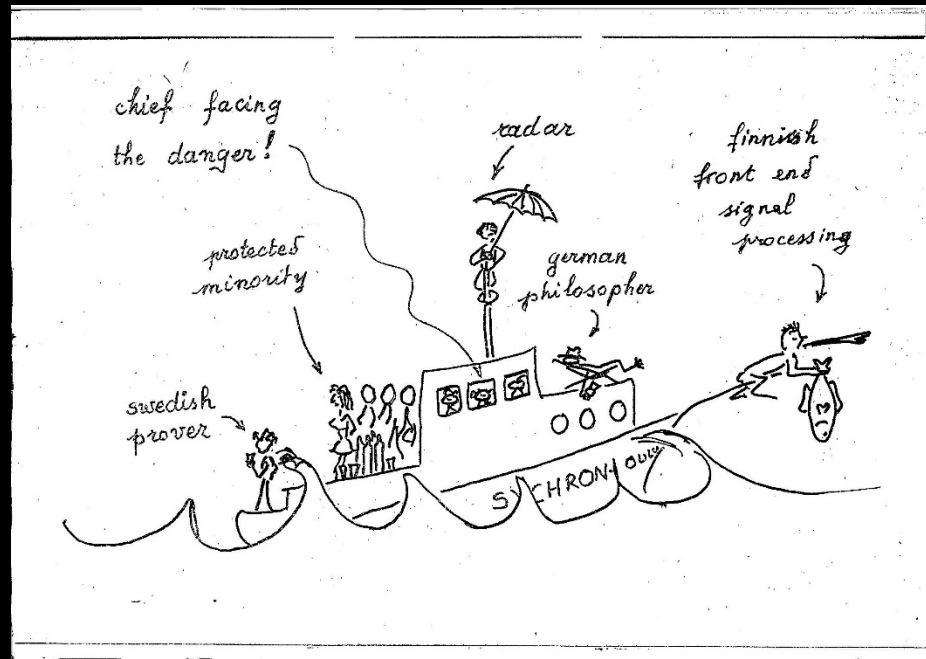 chief facing
the danger!
radar
finnish
front end
signal
processing
protected
minority
german
philosopher
swedish
prover